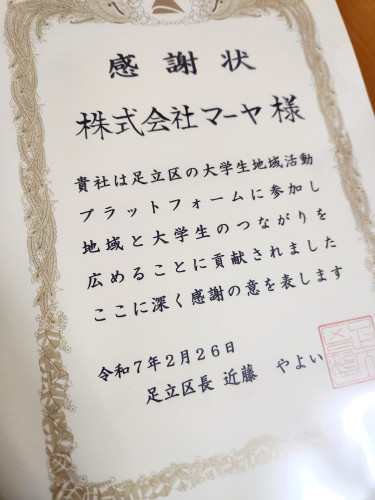 感謝状
株式会社マーヤ様
貴社は足立区の大学生地域活動
プラットフォームに参加し
地域と大学生のつながりを
広めることに貢献されました
ここに深く感謝の意を表します
令和7年2月26日
足立区長 近藤 やよい